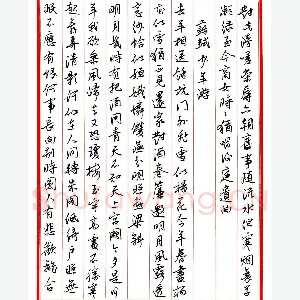 對此漫嗟榮辱六朝舊事隨流水但寒煙衰草
凝綠至今商女時時猶唱後庭遺曲
蘇軾少年遊
去年相送餘杭門外飛雪似楊花今年春盡楊
花似雪猶不見還家對酒捲簾邀明月風露透
窗紗恰似姮娥憐雙燕分明照畫梁斜
明月幾時有把酒問青天不知天上宮闕今夕是何
年我欲乘風歸去又恐瓊樓玉宇高處不勝寒
起舞弄清影何似在人間轉朱閣低綺戶照無
眠不應有恨何事長向別時圓人有悲歡離合